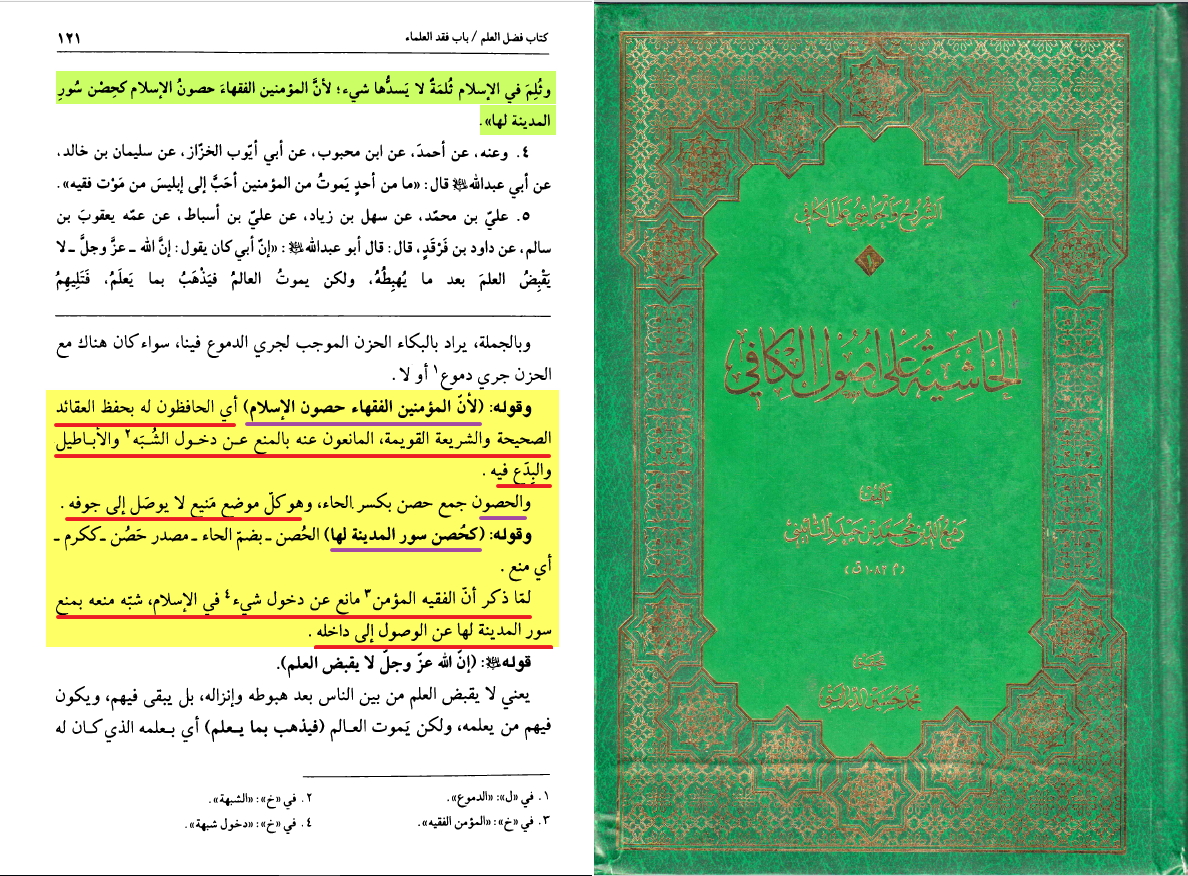 كتاب فضل العلم / باب فقد العلماء
١٢١
وثُلِمَ في الإسلام ثُلمَةٌ لا يَسدُّها شيء؛ لأنَّ المؤمنين الفقهاءَ حصونُ الإسلام كحِصْن سُورِ
المدينة لها».
٤. وعنه، عن أحمدَ، عن ابن محبوب، عن أبي أيّوب الخزّاز، عن سليمان بن خالد،
عن أبي عبدالله ﷺ قال: «ما من أحدٍ يَموتُ من المؤمنين أحَبَّ إلى إبليسَ من مَوْت فقيه».
٥. عليّ بن محمّد، عن سهل بن زياد، عن عليّ بن أسباط، عن عمّه يعقوبَ بن
سالم، عن داود بن فَرْقَدٍ، قال: قال أبو عبدالله ﷺ: «إنّ أبي كان يقول: إنَّ الله ـ عزَّ وجلَّ ـ لا
يَقْبِضُ العلمَ بعد ما يُهبِطُهُ، ولكن يموتُ العالمُ فيَذْهَبُ بما يَعلَمُ، فَتَلِيهِمُ
وبالجملة، يراد بالبكاء الحزن الموجب لجري الدموع فينا، سواء كان هناك مع
الحزن جري دموع١ أو لا.
وقوله: (لأنّ المؤمنين الفقهاء حصون الإسلام) أي الحافظون له بحفظ العقائد
الصحيحة والشريعة القويمة، المانعون عنه بالمنع عن دخول الشُبَه٢ والأباطيل
والبِدَع فيه.
والحصون جمع حصن بكسر الحاء، وهو كلّ موضع مَنيع لا يوصَل إلى جوفه.
وقوله: (كحُصن سور المدينة لها) الحُصن ـ بضمّ الحاء ـ مصدر حَصُن ـ ككرم ـ
أي منع.
لمّا ذكر أنّ الفقيه المؤمن٣ مانع عن دخول شيء٤ في الإسلام، شبّه منعه بمنع
سور المدينة لها عن الوصول إلى داخله.
قوله ﷺ: (إنّ الله عزّ وجلّ لا يقبض العلم).
يعني لا يقبض العلم من بين الناس بعد هبوطه وإنزاله، بل يبقى فيهم، ويكون
فيهم من يعلمه، ولكن يَموت العـالم (فيذهب بما يـعلم) أي بـعلمه الذي كـان له
١. في «ل»: «الدموع».
٢. في «خ»: «الشبهة».
٣. في «خ»: «المؤمن الفقيه».
٤. في «خ»: «دخول شبهة».
الشروح والحواشي على الكافي
الحاشية على أصول الكافي
تأليف
رفيع الدين محمد بن حيدر النائيني
(م ١٠٨٢ ق)
تحقيق
محمد حسين الدرايتي